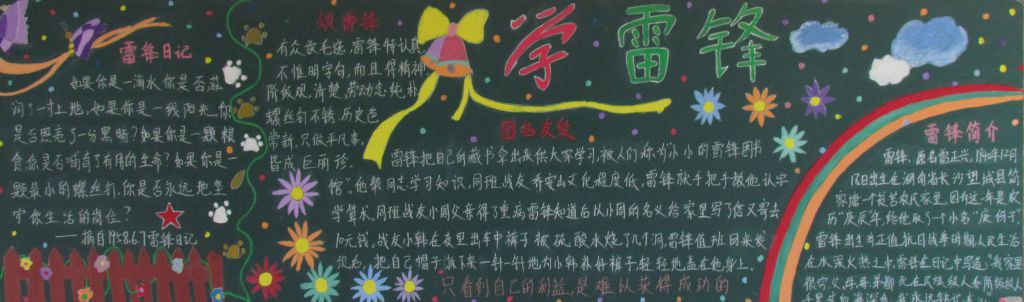 学雷锋
雷锋日记
如果你是一滴水,你是否滋
润了一寸土地,如果你是一线阳光,你
是否照亮了一分黑暗?如果你是一颗粮
食,你是否哺育了有用的生命?如果你是一
颗最小的螺丝钉,你是否永远地坚
守你生活的岗位?
——摘自1958.6.7雷锋日记
颂雷锋
有众表毛选,雷锋特认真,
不惟明字句,而且得精神
阶级观,清楚,劳动态纯朴
螺丝钉不锈,历史色
常新,只做平凡事,
皆成巨丽珍.
团结友爱
雷锋把自己的藏书拿出来供大家学习,被人们称为小小的雷锋图书
馆",他帮同志学习知识,同班战友乔安山文化程度低,雷锋放手把手教他认字
学算术,同班战友小周父亲得了重病雷锋知道后以小周的名义给家里写了信又寄去
10元钱,战友小韩在夜里出车中裤子被硫酸水烧了几个洞,雷锋值班回来发
现后,把自己帽子拆下来一针一针地为小韩补好裤子轻轻地盖在他身上.
只看到自己的利益,是难以获得成功的
雷锋简介
雷锋,原名雷正兴,1940年12月
18日出生在湖南省长沙望城县简
家塘一个贫苦农民家里,因为这一年是农
历"庚辰年给他取了一个小名"庚伢子"
雷锋出生时正值抗日战争时期人民生活
在水深火热之中,雷锋在日记中写道:"我家里
很穷,父,母,哥,弟都死在民族敌人和阶级敌人